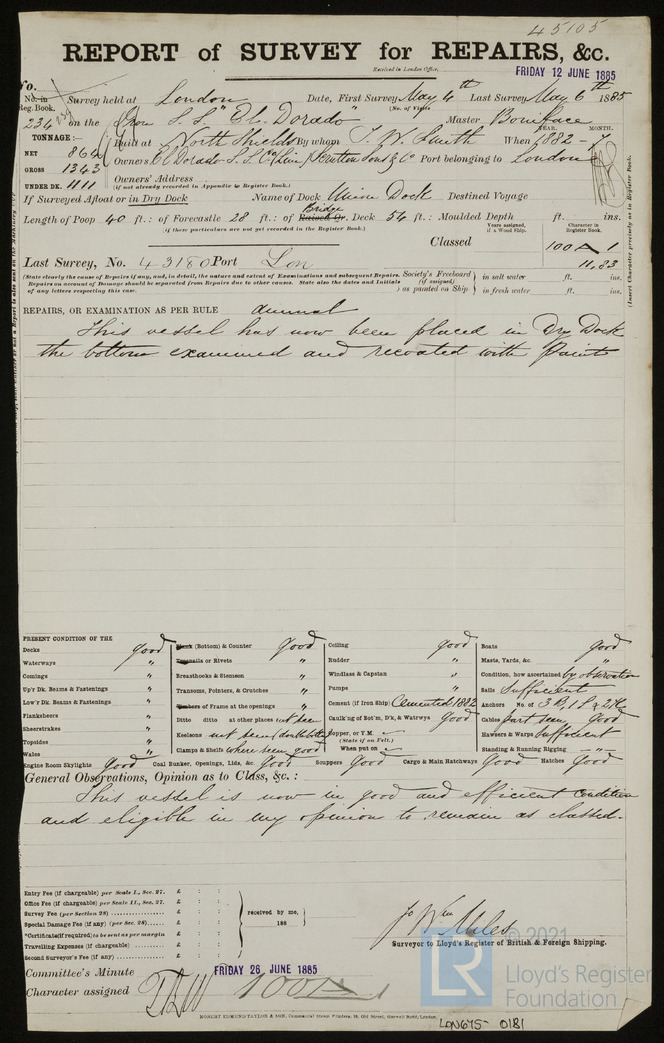 45105
REPORT of SURVEY for REPAIRS, &c.
Received in London Office,
FRIDAY 12 JUNE 1885
No.
No. in Reg. Book. Survey held at London Date, First Survey May 4th Last Survey May 6th 1885
(No. of Visits)
234 on the Iron S.S. "El Dorado" Master Boniface
TONNAGE:— Built at North Shields By whom T. W. Smith When 1882 - 7
YEAR. MONTH.
NET 864
Owners El Dorado S.S. Co Lim (Scrutton Sons & Co Port belonging to London
GROSS 1343
Owners' Address
UNDER DK. 1111 (if not already recorded in Appendix to Register Book.)
If Surveyed Afloat or in Dry Dock Name of Dock Union Dock Destined Voyage
Length of Poop 40 ft.: of Forecastle 28 ft.: of Raised Qr. Bridge Deck 54 ft.: Moulded Depth ft. ins.
(if these particulars are not yet recorded in the Register Book.)
Years assigned, if a Wood Ship. Character in Register Book.
Classed 100 A 1
Last Survey, No. 43180 Port Lon 11,83
(State clearly the cause of Repairs if any, and, in detail, the nature and extent of Examinations and subsequent Repairs.
Repairs on account of Damage should be separated from Repairs due to other causes. State also the dates and Initials
of any letters respecting this case.
Society's Freeboard (if assigned) as painted on Ship in salt water ft. ins.
in fresh water ft. ins.
(Insert Character precisely as in Register Book.)
REPAIRS, OR EXAMINATION AS PER RULE annual
This vessel has now been placed in Dry Dock
the bottom examined and recoated with Paint
PRESENT CONDITION OF THE
Decks good
Waterways "
Comings "
Up'r Dk. Beams & Fastenings "
Low'r Dk. Beams & Fastenings "
Planksheers "
Sheerstrakes "
Topsides "
Wales "
Plank (Bottom) & Counter good
Treenails or Rivets "
Breasthooks & Stemson "
Transoms, Pointers, & Crutches "
Timbers of Frame at the openings "
Ditto ditto at other places not seen
Keelsons not seen (double bottom)
Clamps & Shelfs where seen good
Ceiling good
Rudder "
Windlass & Capstan "
Pumps "
Cement (if Iron Ship) Cemented 1882
Caulk'ng of Bot'm, D'k, & Watrwys good
Copper, or Y.M.
(State if on Felt.)
When put on
Boats good
Masts, Yards, &c. "
Condition, how ascertained by observation
Sails Sufficient
Anchors No. of 3 B, 1 S, & 2 K
Cables part seen, good
Hawsers & Warps Sufficient
Standing & Running Rigging "
Engine Room Skylights Good Coal Bunker, Openings, Lids, &c. Good Scuppers Good Cargo & Main Hatchways Good Hatches Good
General Observations, Opinion as to Class, &c.:
This vessel is now in good and efficient condition
and eligible in my opinion to remain as classed.
Entry Fee (if chargeable) per Scale I., Sec. 27. £ : :
Office Fee (if chargeable) as per Scale II., Sec. 27. £ : :
Survey Fee (per Section 28) £ : :
Special Damage Fee (if any) (per Sec. 28) £ : :
*Certificate (if required) to be sent as per margin £ : :
Travelling Expenses (if chargeable) £ : :
Second Surveyor's Fee (if any) £ : :
received by me,
188
Jo Wm Miles
Surveyor to Lloyd's Register of British & Foreign Shipping.
Committee's Minute FRIDAY 26 JUNE 1885
Character assigned 100 A 1
ROBERT EDMUND TAYLOR & SON, Commercial Steam Printers, 19, Old Street, Goswell Road, London.
LON675-0181
© 2021
LR
Lloyd's Register
Foundation